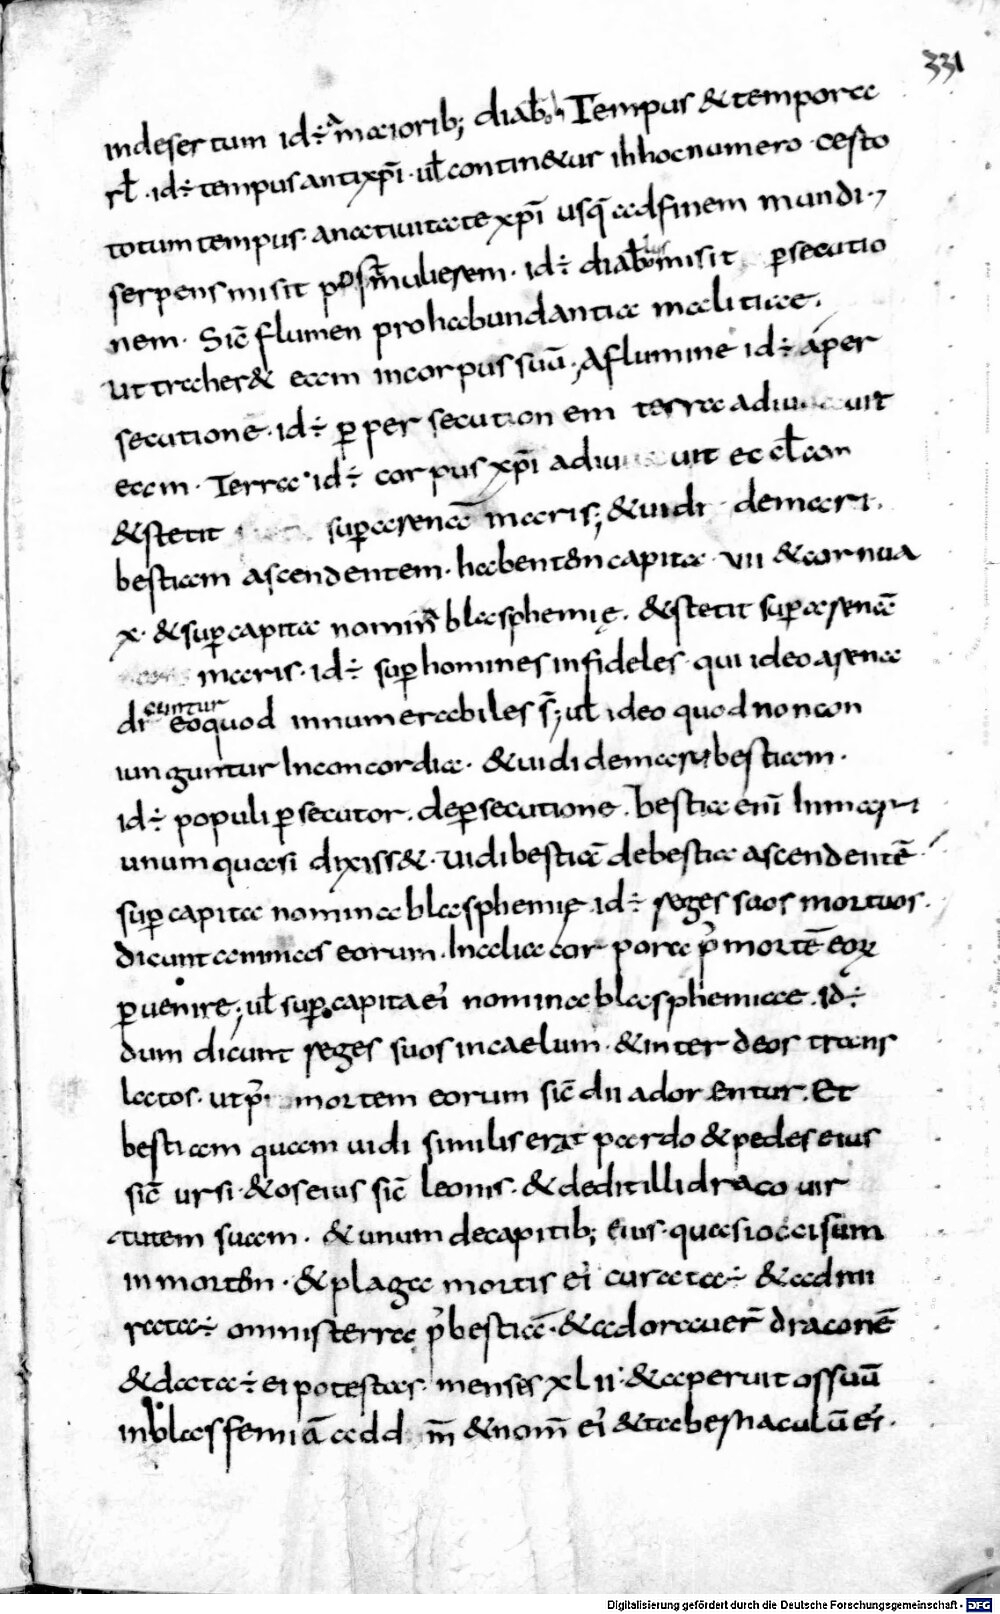 331
indesertum id÷ a maiorib; diab. Tempus &tempora
rł. id÷ tempus antixp̄i. uł contin&ur in hoc numero. aesto
totum tempus. anatiuitate xp̄i usq; adfinem mundi.,
serpens misit pos̄t mulierem. id÷ diabulus misit p̱secutio
nem. Sic̄ flumen prohabundantia malitiae.
ut traher& eam incorpus suū., Aflumine id÷ áper
secutione. id÷ p̱ persecutionem terra adiuuauit
eam. Terra. id÷ corpus xp̄i adiuuauit eccl̄am
&stetit sup̱arenā maris; &uidi demari.
bestiam ascendentem. habentem capita. vii &cornua
x. &sup̱capita nomina blasphemię. &stetit sup̱arenā
maris. id÷ sup̱ homines infideles. qui ideo arena
dicuntur eoquod innumerabiles s̄; uł ideo quod noncon
iunguntur Inconcordia. &uidi demari bestiam.
id÷ populi p̱secutor. dep̱secutione. bestia enī Inmari
unum quasi dixiss&. Vidi bestiā debestia ascendentē.
sup̱ capita nomina blasphemię id÷ reges suos mortuos.
dicunt animas eorum. Inalia corpora p̄ mortē eoꝝ
p̱uenire; uł sup̱ capita ei' nomina blasphemiae. id÷
dum dicunt reges suos incaelum. &inter deos trans
latos. ut p̄ mortem eorum sic̄ dii adorentur. Et
bestiam quam uidi similis erat pardo &pedes eius
sic̄ ursi. &os eius sic̄ leonis. &dedit illi draco uir
tutem suam. &unum decapitib; eius. quasi occisum
inmortem. &plaga mortis ei' curata÷ &admi
rata÷ omnisterra p̄ bestiā. &adorauer̄ draconē
&data÷ ei potestas. menses xlii. &aperuit os suū
inblasfemiā add m̄ &nom̄ ei' &tabernaculū ei'.
Digitalisierung gefördert durch die Deutsche Forschungsgemeinschaft - DFG